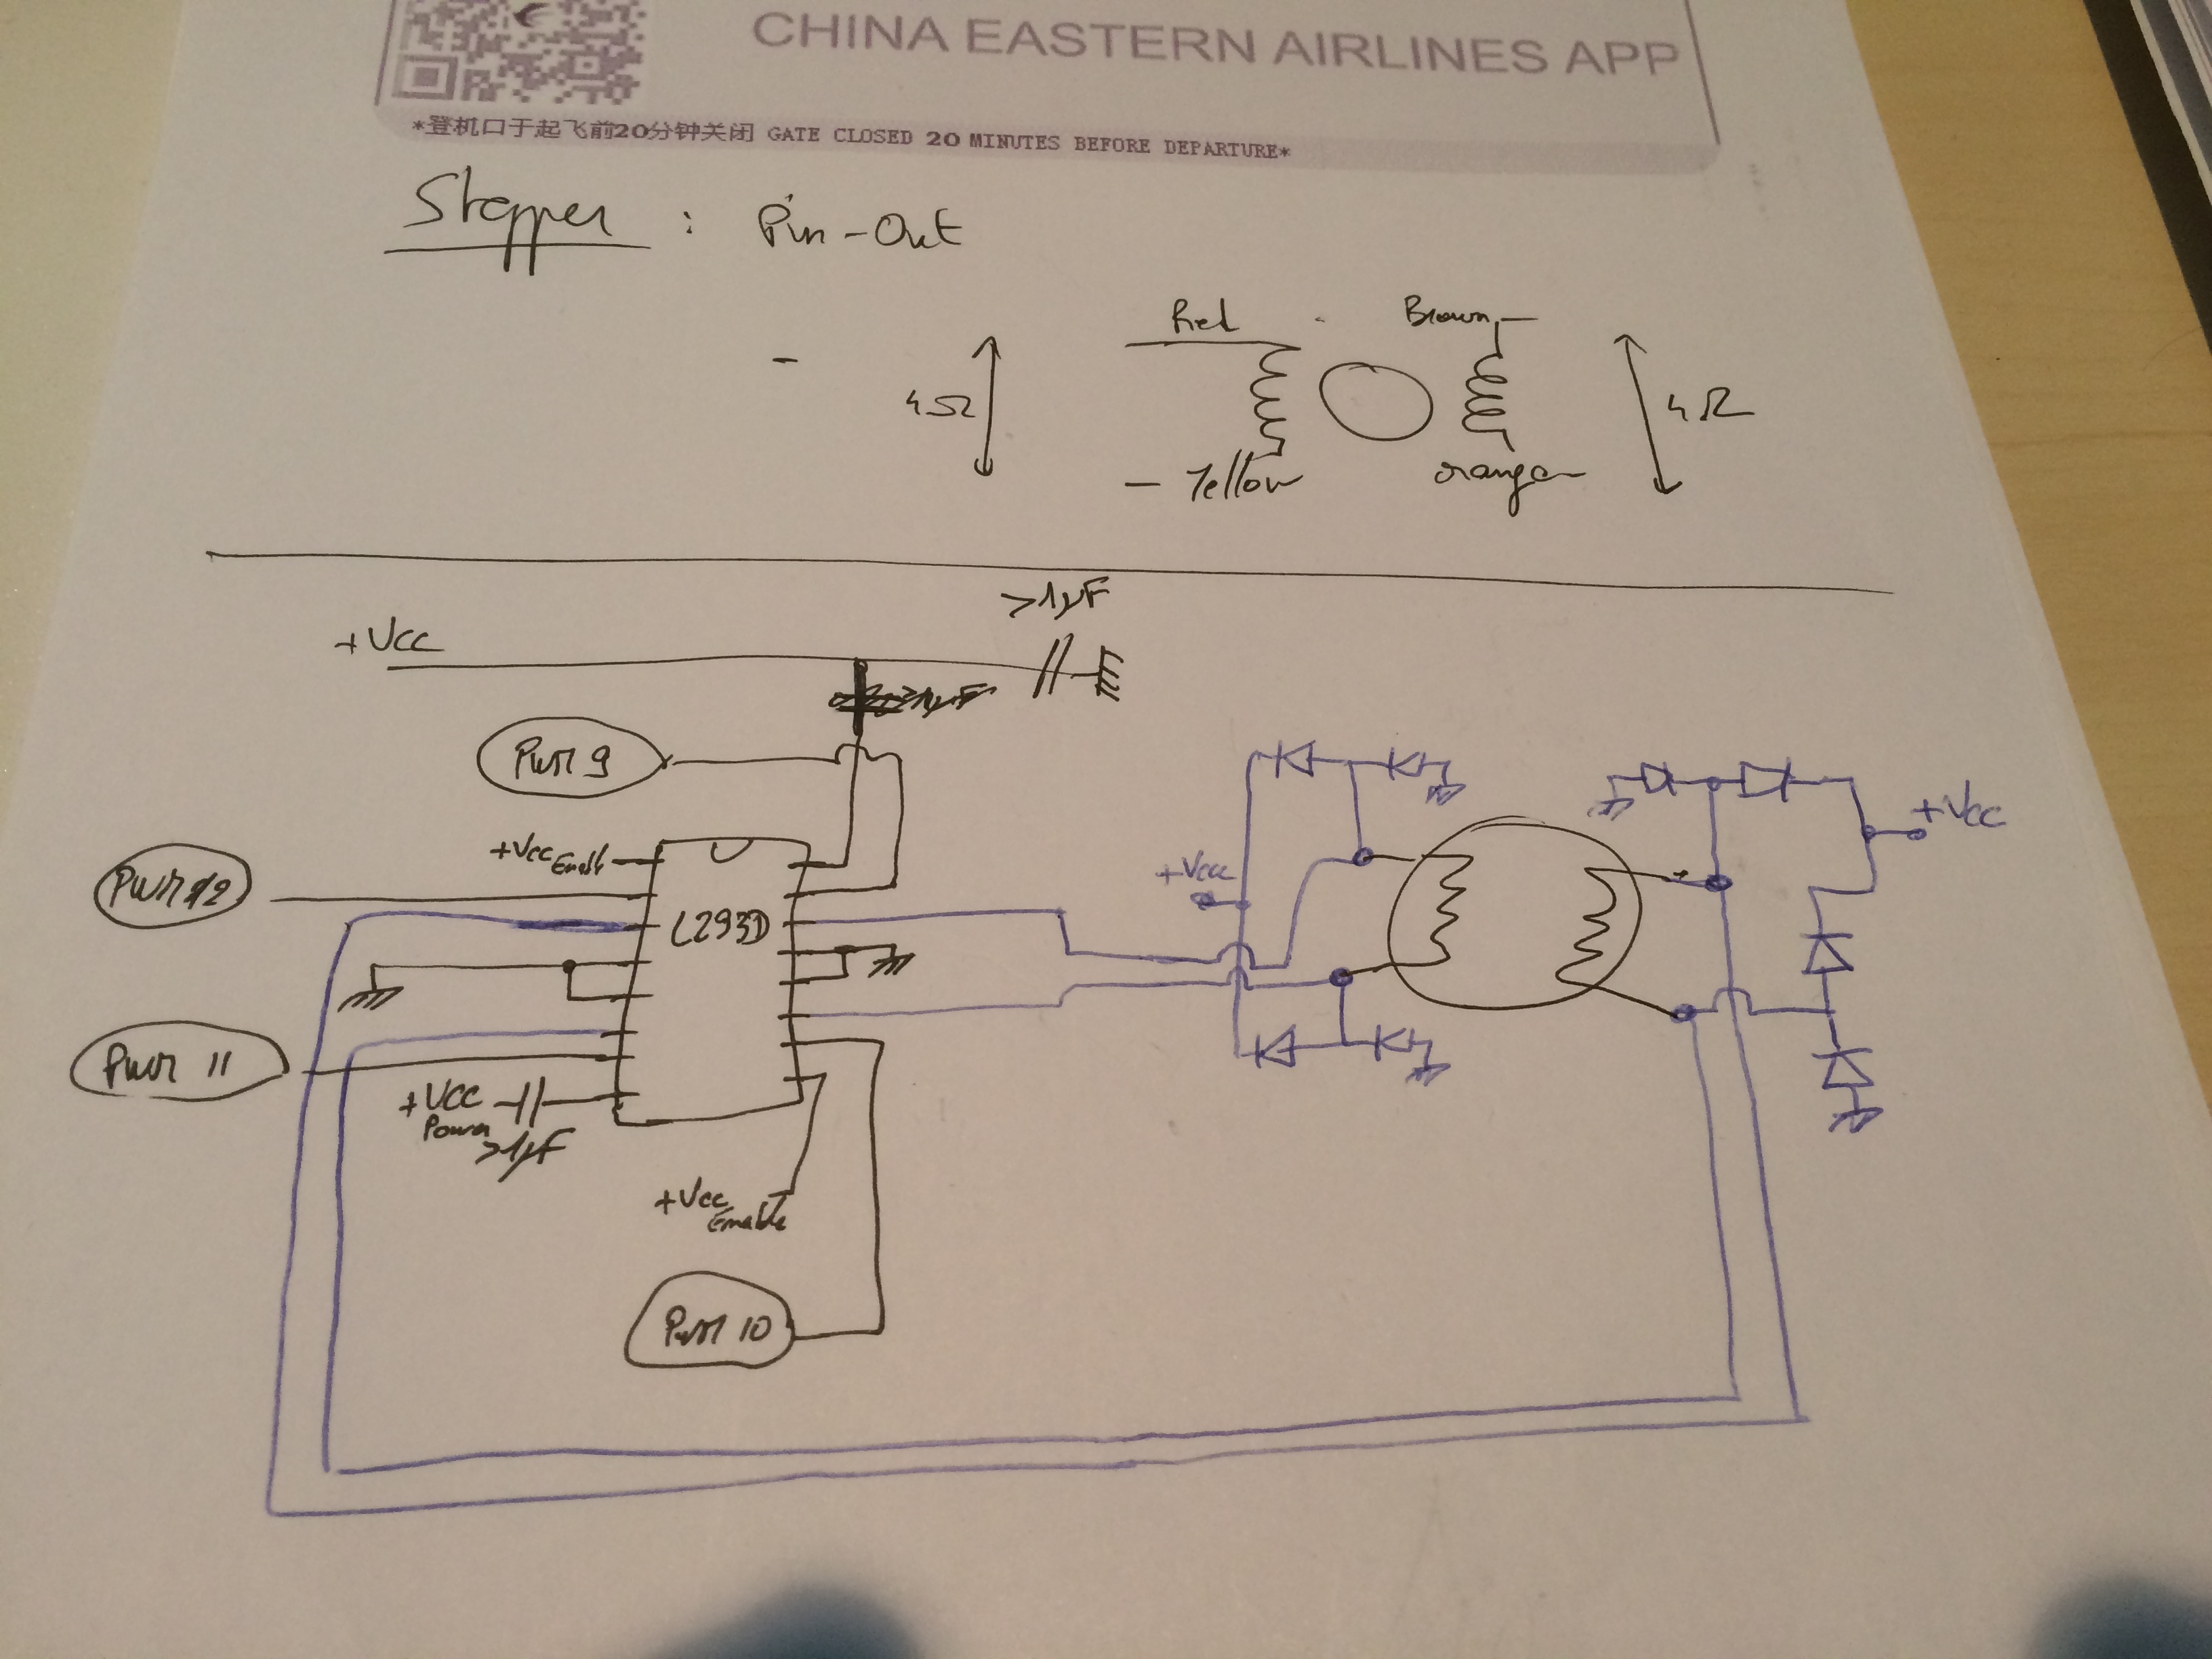 CHINA EASTERN AIRLINES APP
*登机口于起飞前20分钟关闭 GATE CLOSED 20 MINUTES BEFORE DEPARTURE*
Stepper : Pin-Out
Red
Brown
4Ω
4Ω
Yellow
orange
>1µF
+Vcc
>1µF
PWM 9
+Vcc Enable
PWM 12
L293D
+Vcc
+Vcc
PWM 11
+VCC
Power
>1µF
+Vcc
Enable
PWM 10